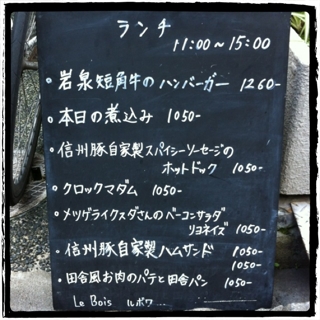 ランチ
11:00~15:00
岩泉短角牛のハンバーガー 1260-
本日の煮込み 1050-
信州豚自家製スパイシーソーセージの
ホットドック 1050-
クロックマダム 1050-
メツゲライクスダさんのベーコンサラダ
リヨネイズ 1050-
信州豚自家製ハムサンド 1050-
1050-
田舎風お肉のパテと田舎パン 1050-
Le Bois ルボワ